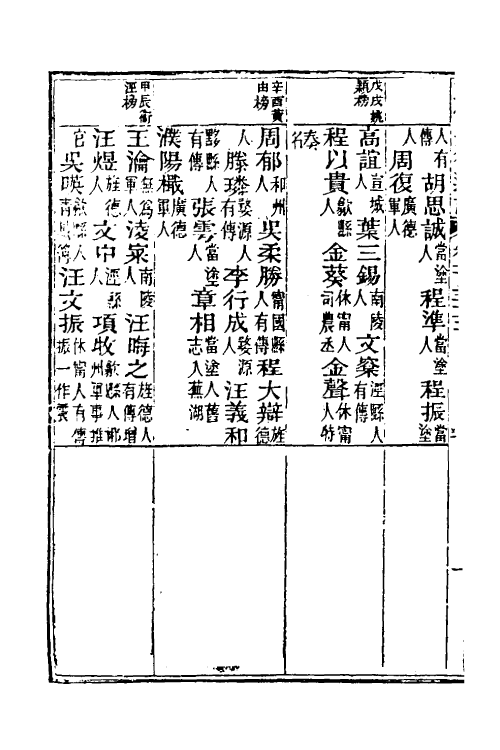 人有傳 胡思誠當塗人 程準當塗人 程振當塗
人 周復廣德軍人
戊戌姚穎榜
高誼宣城人 葉三錫南陵人 文粲涇縣人有傳
程以貴歙縣人 金葵休甯人司農丞 金聲休甯人特
奏名
辛酉黃由榜
周郁和州人 吳柔勝甯國縣人有傳 程大辯旌德
人 滕璘婺源人有傳 李行成婺源人 汪義和
黟縣人有傳 張雲當塗人 章相當塗人舊志入蕪湖
濮陽檝廣德軍人
甲辰衛涇榜
王瀹無為軍人 淩泉南陵人 汪晦之旌德人有傳增
汪煜旌德人 文中涇縣人 項牧歙縣人鄂州軍事推
官 吳英歙縣人 汪文振休甯人有傳振一作震